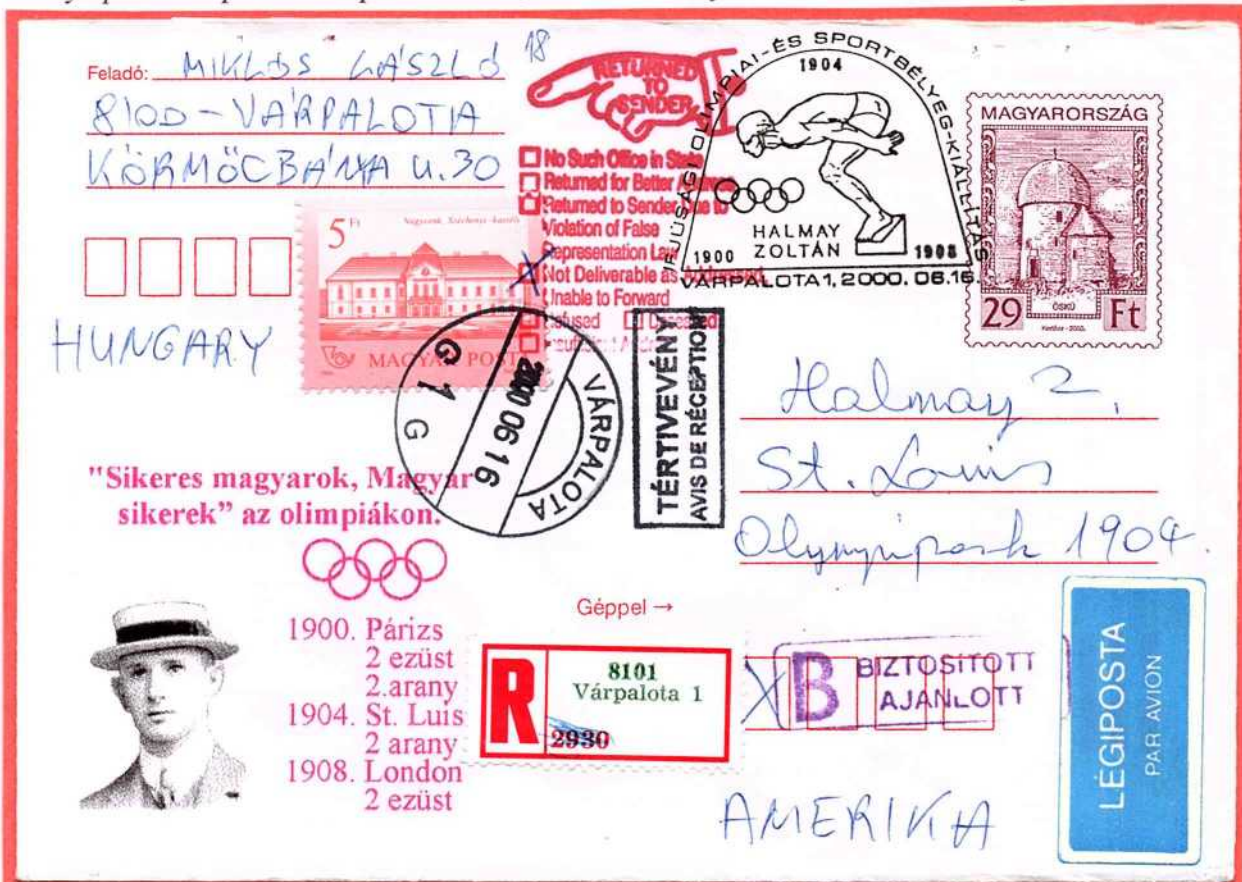 Feladó: MIKLÓS LÁSZLÓ
8100-VÁRPALOTA
KÖRMÖCBÁNYA U.30
HUNGARY
18
RETURNED
TO
SENDER
No Such Office in State
Returned for Better
Returned to Sender Due to
Violation of False
Representation Law
Not Deliverable as Addressed
Unable to Forward
IFJÚSÁGI OLIMPIAI-ÉS SPORTBÉLYEG-KIÁLLÍTÁS
1904
HALMAY
ZOLTÁN
1900 1908
VÁRPALOTA 1, 2000. 06.16.
MAGYARORSZÁG
ÖSKÜ
29 Ft
5 Ft
Nagycenk, Széchenyi-kastély
MAGYAR POSTA
VÁRPALOTA
2000 06 16
G 1
G
TÉRTIVEVÉNY
AVIS DE RÉCEPTION
Halmay Z.
St. Louis
Olympipark 1904.
AMERIKA
"Sikeres magyarok, Magyar
sikerek" az olimpiákon.
1900. Párizs
2 ezüst
2.arany
1904. St. Luis
2 arany
1908. London
2 ezüst
Géppel →
R
8101
Várpalota 1
2930
B BIZTOSÍTOTT
AJÁNLOTT
LÉGIPOSTA
PAR AVION